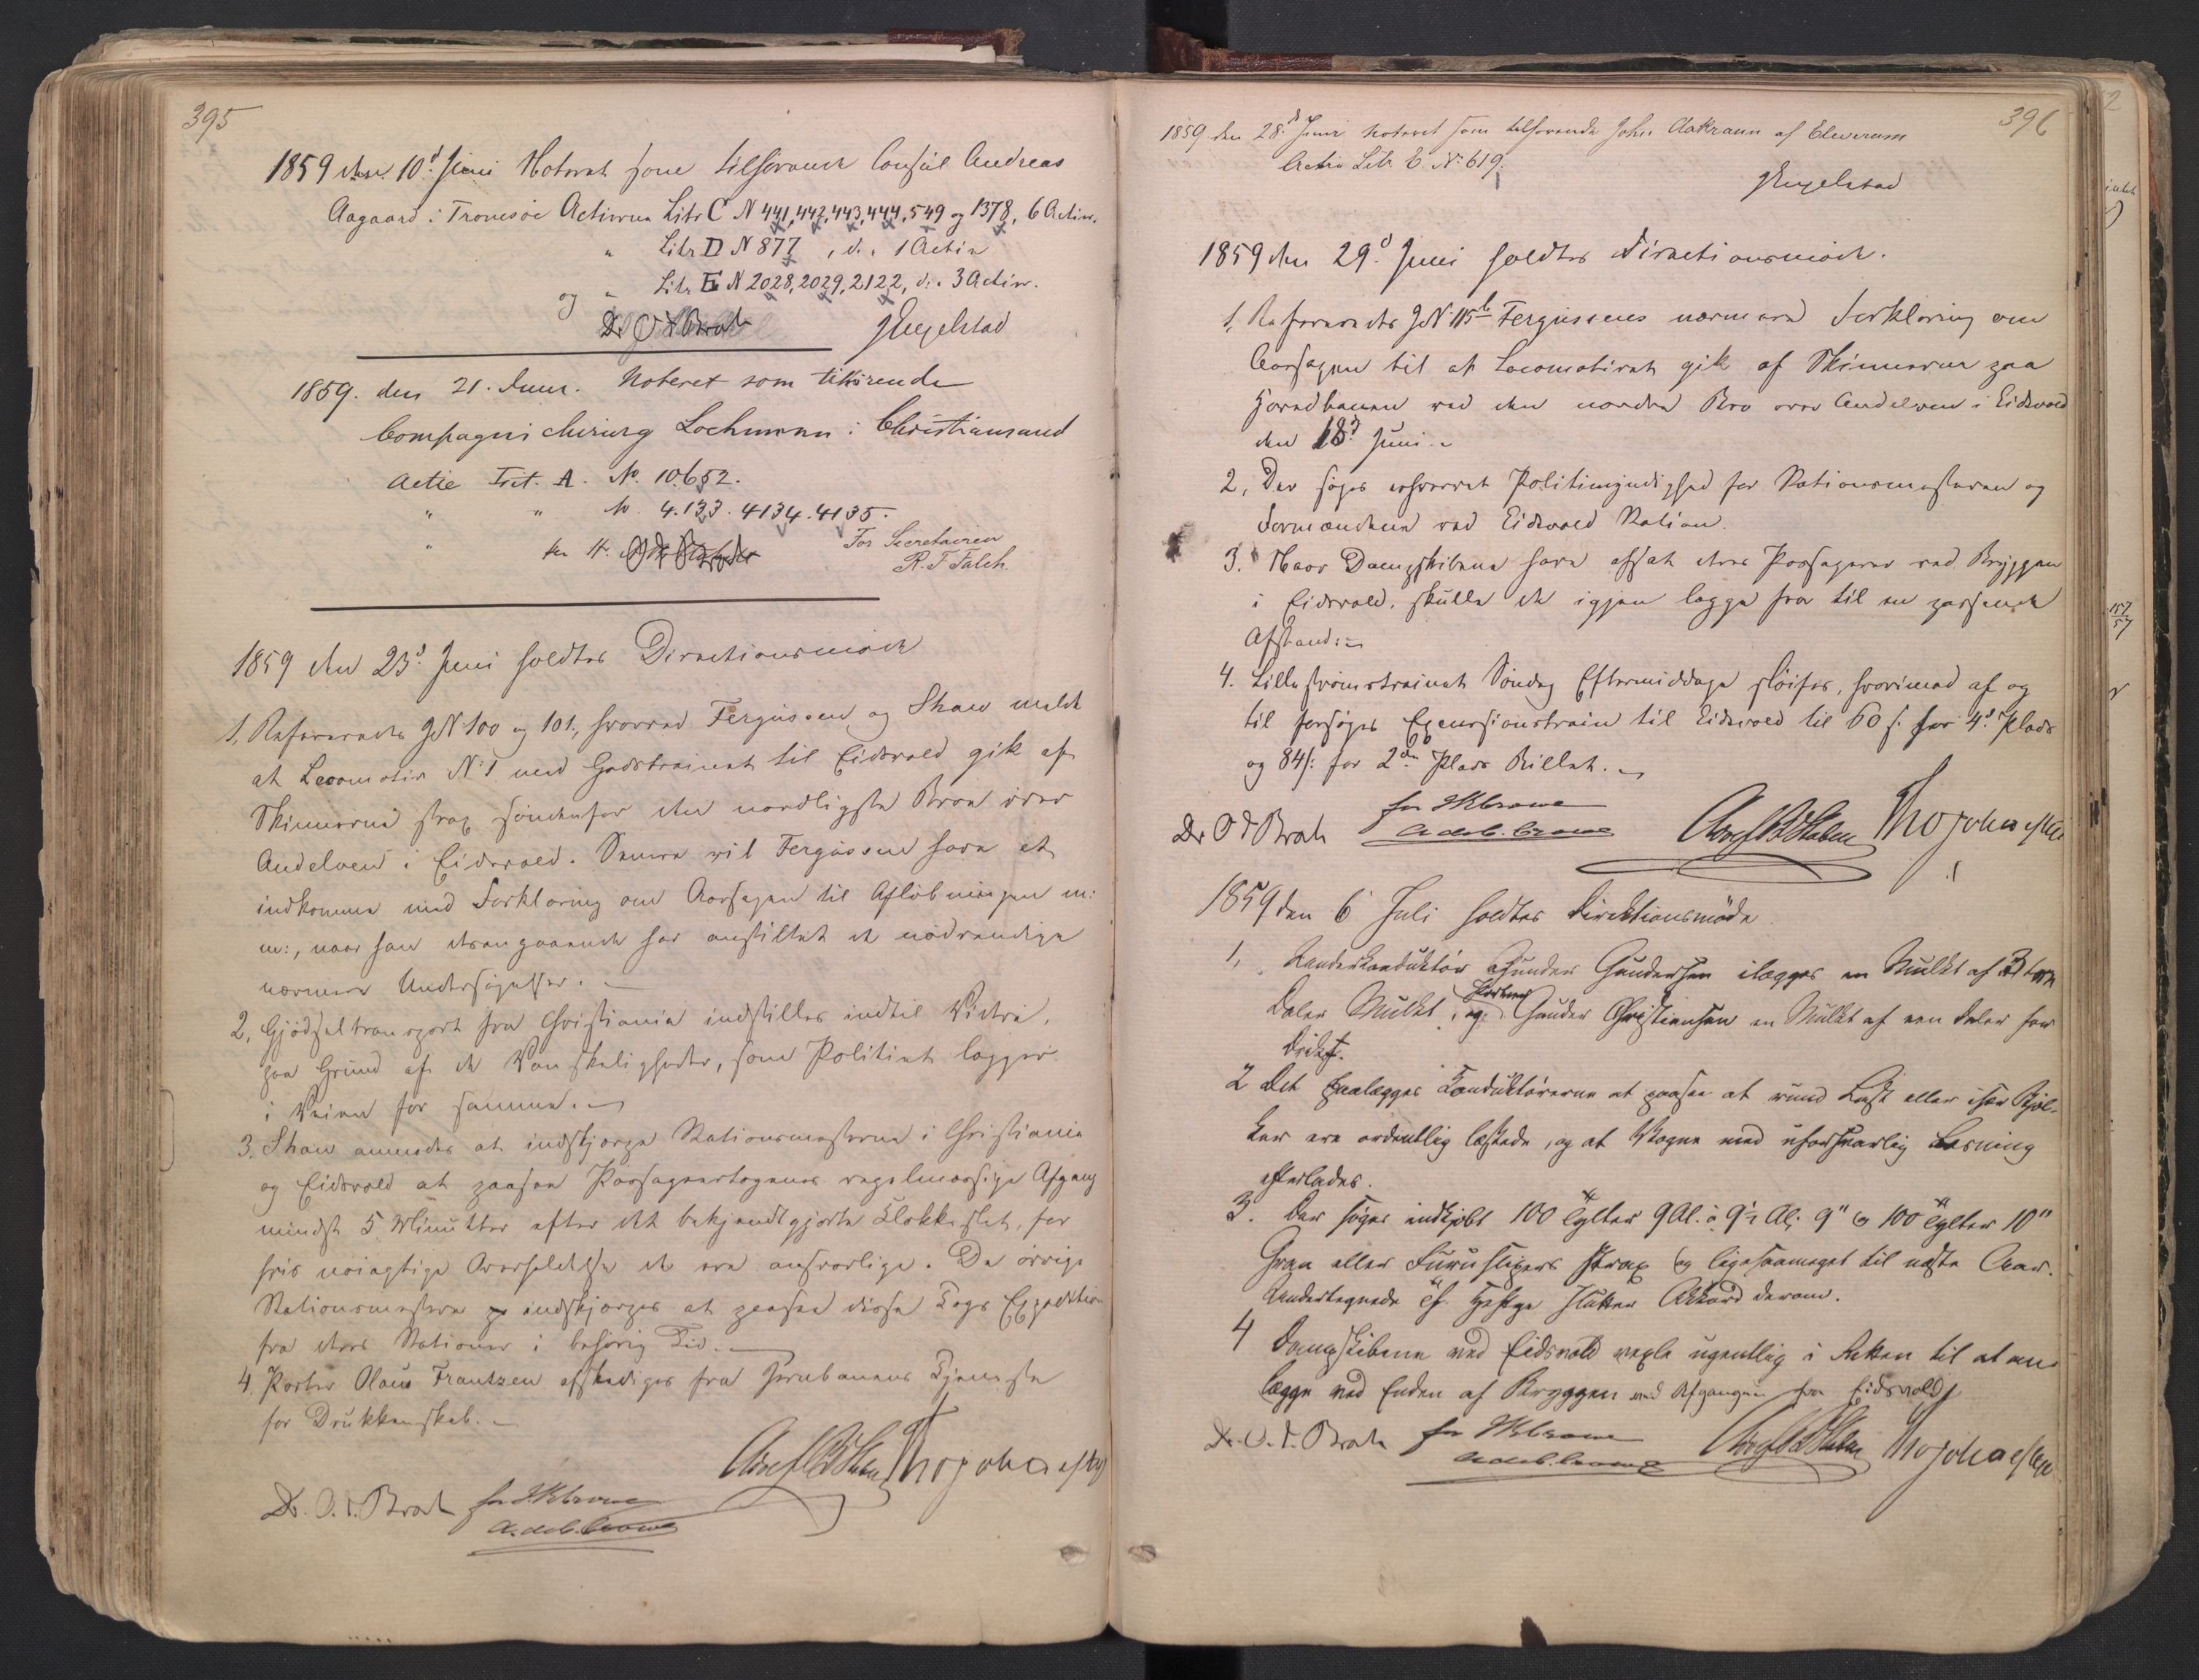 395
1859 den 10.d Juni Noteret som tilhørende Consul Andreas
Aagaard i Tromsøe Actierne Litr C N 441, 442, 443, 444, 549 og 1378, 6 Actier.
" Litr D N 877, d. : 1 Actie
og " Litr. E N 2028, 2029, 2122, d. : 3 Actier.
Dr O J Broch JEngelstad
1859. den 21. Juni. Noteret som tilhørende
Compagnichirurg Lochmann i Christiansand
Actie Lit. A. No. 10.652.
" " No. 4.133. 4134. 4135.
" For Secretairen
R. F. Falch.
1859 den 23.d Juni holdtes Directionsmøde
1, Refereredes J N 100 og 101, hvorved Fergusson og Shaw meldte
at Locomotiv N. 1 med Godstrainet til Eidsvold gik af
Skinnerne strax søndenfor den nordligste Broe over
Andelven i Eidsvold. Senere vil Fergusson have at
indkomme med Forklaring om Aarsagen til Afløbningen m:
m:, naar han desangaaende har anstillet de nødvendige
nærmere Undersøgelser. –
2, Gjødseltransport fra Christiania indstilles indtil Vintren,
paa Grund af de Vanskeligheder, som Politiet lægger
i Veien for samme. –
3. Shaw anmodes at indskjærpe Stationsmesterne i Christiania
og Eidsvold at paasee Passagertogenes regelmæssige Afgang
mindst 5 Minutter efter det bekjendtgjorte Klokkeslet, for
hvis nøiagtige Overholdelse de ere ansvarlige. De øvrige
Stationsmestere indskjærpes at paasee disse Togs Expedition
fra deres Stationer i behørig Tid. –
4. Porter Olaus Frantzen afskediges fra Jernbanens Tjeneste
for Drukkenskab. –
Dr. O. J. Broch for JRCrowe
A. deC. Crowe
396
1859 den 28.d Juni noteret som tilhørende John Aakrann af Elverum
Actie Litr. E. N: 619.
JEngelstad
1859 den 29.d Juni holdtes Directionsmøde.
1, Refereredes J N 115b Fergussens nærmere Forklaring om
Aarsagen til at Locomotivet gik af Skinnerne paa
Hovedbanen ved den nordre Bro over Andelven i Eidsvold
den 18.d Juni. –
2, Der søges erhvervet Politimyndighed for Stationsmesteren og
Formændene ved Eidsvold Station.
3. Naar Dampskibene have afsat deres Passagerer ved Bryggen
i Eidsvold, skulle de igjen lægge fra til en passende
Afstand. –
4. Lillestrømstrainet Søndag Eftermiddage sløifes, hvorimod af og
til forsøges Excursionstrain til Eidsvold til 60 s. for 4.d Plads
og 84 s: for 2den Plads Billet. –
Dr O J Broch for JRCrowe
A deC. Crowe
1859 den 6 Juli holdtes Direktionsmøde
1, Underkonduktør Gunder Gundersen ilægges en Mulkt af 3 tre
Daler Mulkt, og Gunder Christiansen en Mulkt af een Daler for
Portner
2 Det paalægges Conduktørerne at paasee at rund Last eller især Bjel-
ker ere ordentlig læssede, og at Vogne med uforsvarlig Læsning
efterlades.
3. Der søges indkjøbt 100 Tylter 9 Al. à 9½ Al: 9" og 100 Tylter 10"
Gran eller Furu slipers strax og ligesaameget til næste Aar.
4 Dampskibene ved Eidsvold vexle ugentlig i Retten til at an-
lægge ved Enden af Bryggen ved Afgangen fra Eidsvold
Dr. O. J. Broch for JRCrowe
A deC. Crowe